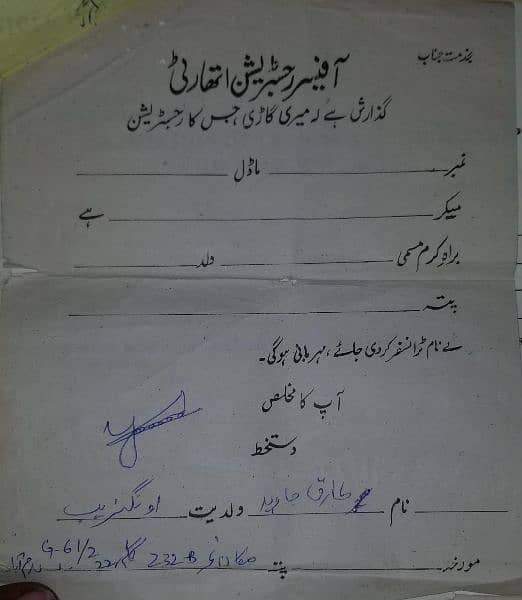 بخدمت جناب
آفیسر رجسٹریشن اتھارٹی
گذارش ہے کہ میری گاڑی جس کا رجسٹریشن
نمبر ــــــــ ماڈل ــــــــ
میکر ــــــــ ہے
براہِ کرم مسمی ــــــــ ولد ــــــــ
پتہ ــــــــ
کے نام ٹرانسفر کر دی جائے، مہربانی ہوگی۔
آپ کا مخلص
دستخط
نام طارق جاوید ولدیت اورنگزیب
مورخہ ــــــــ پتہ مکان نمبر 232-B گلی 22 G-6 1/2